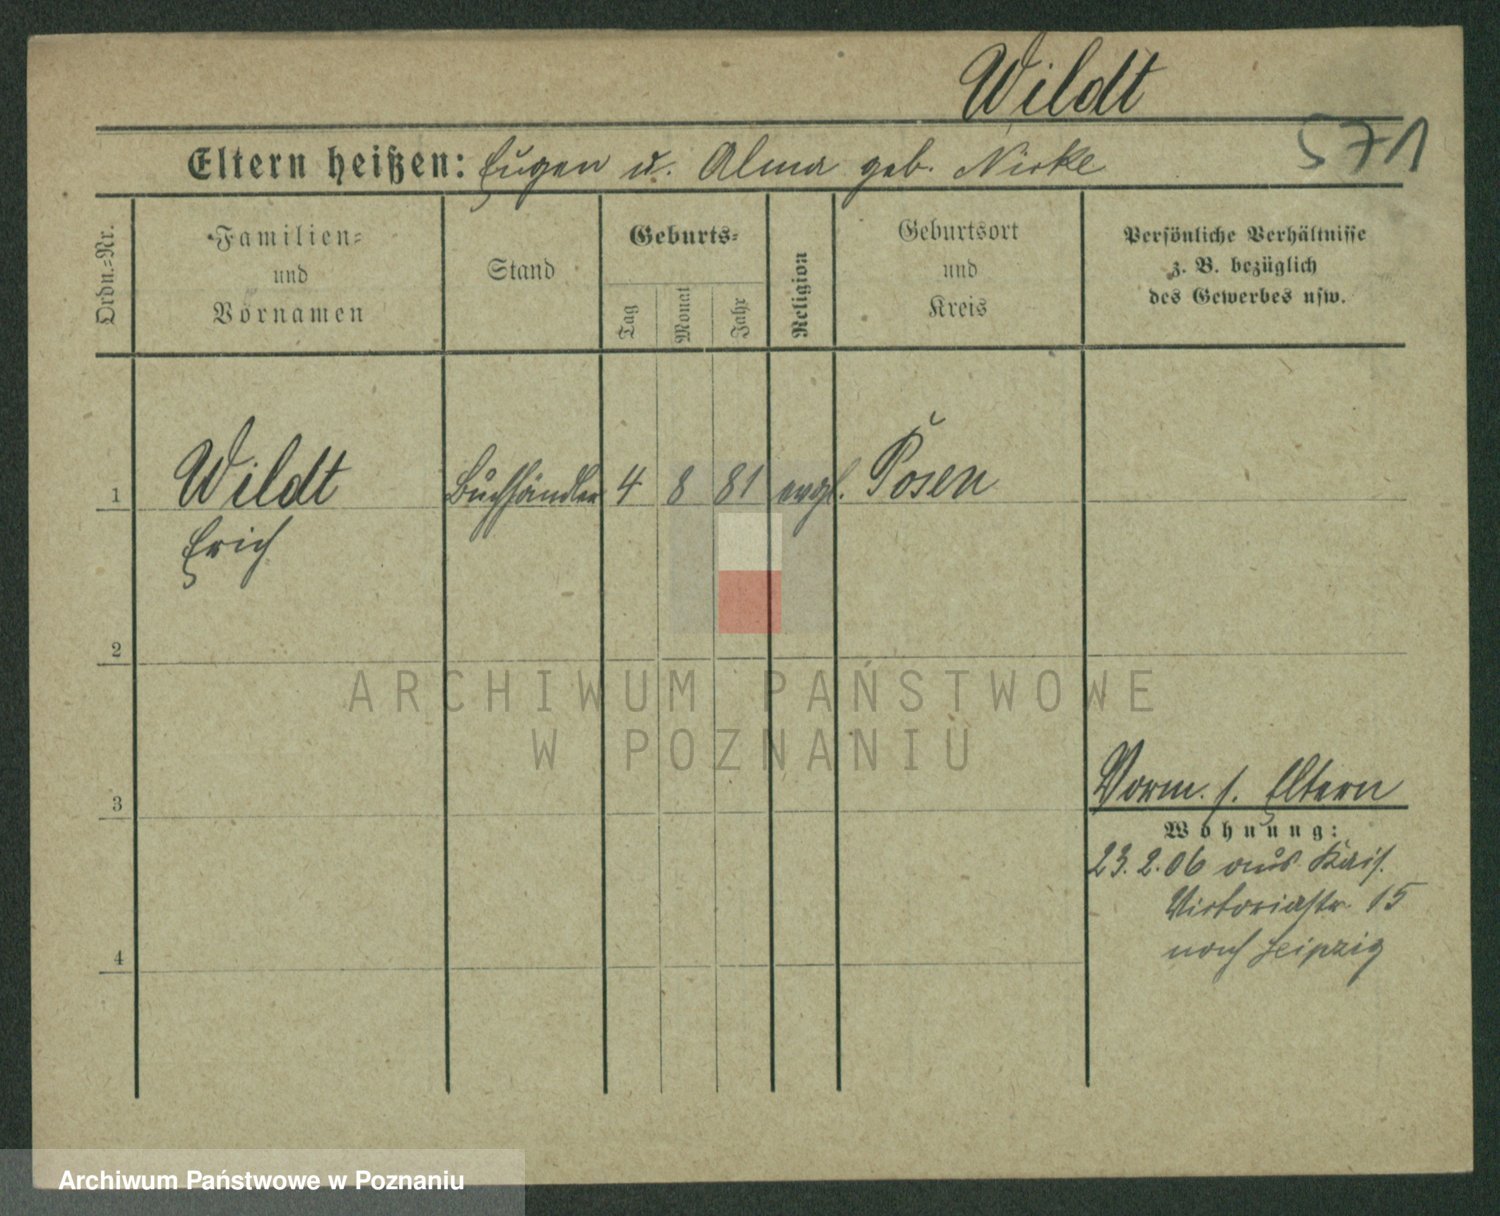 Wildt
571
Eltern heißen: Eugen u. Alma geb.
Ordn.-Nr.
Familien-
und
Vornamen
Stand
Geburts-
Tag
Monat
Jahr
Religion
Geburtsort
und
Kreis
Persönliche Verhältnisse
z. B. bezüglich
des Gewerbes usw.
1 Wildt Buchhändler 4 8 81 evgl. Posen
Erich
2
ARCHIWUM PAŃSTWOWE
W POZNANIU
3
Vorm. s. Eltern
Wohnung:
23.2.06 aus Kais.
Victoriastr. 15
nach Leipzig
4
Archiwum Państwowe w Poznaniu